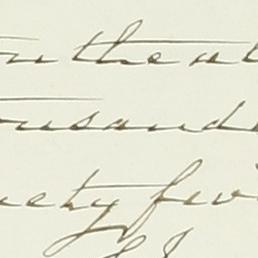 on the at
ousand
nety five